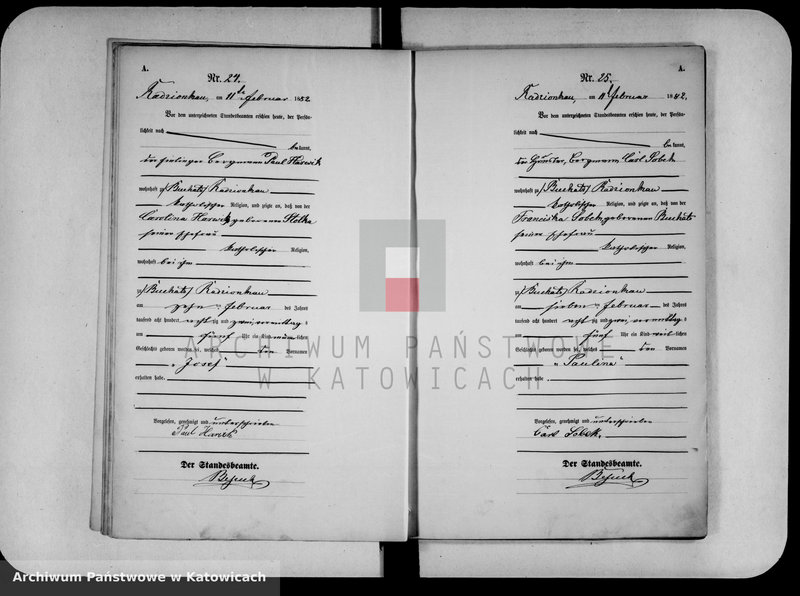 A.
Nr. 24.
Radzionkau, am 11ten Februar 1882.
Vor dem unterzeichneten Standesbeamten erschien heute, der Persön-
lichkeit nach
bekannt,
Bergmann Paul
wohnhaft zu Radzionkau
katholischer Religion, und zeigte an, daß von der
Carolina geborenen
seiner Ehefrau
katholischer Religion,
wohnhaft bei ihm
zu Radzionkau
am zehn ten Februar des Jahres
tausend acht hundert acht zig und zwei Vormittag s
um fünf Uhr ein Kind männ lichen
Geschlechts geboren worden sei, welches den Vornamen
"Josef"
erhalten habe.
Vorgelesen, genehmigt und unterschrieben
Paul
Der Standesbeamte.
A.
Nr. 25.
Radzionkau, am Februar 1882.
Vor dem unterzeichneten Standesbeamten erschien heute, der Persön-
lichkeit nach
bekannt,
der Bergmann Carl Sobek
wohnhaft zu Radzionkau
katholischer Religion, und zeigte an, daß von der
Franciska Sobek, geborenen
seiner Ehefrau
katholischer Religion,
wohnhaft bei ihm
zu Radzionkau
am sieben ten Februar des Jahres
tausend acht hundert acht zig und zwei Vormittag s
um fünf Uhr ein Kind weib lichen
Geschlechts geboren worden sei, welches den Vornamen
"Paulina"
erhalten habe.
Vorgelesen, genehmigt und unterschrieben
Carl Sobek,
Der Standesbeamte.
ARCHIWUM PAŃSTWOWE
W KATOWICACH
Archiwum Państwowe w Katowicach